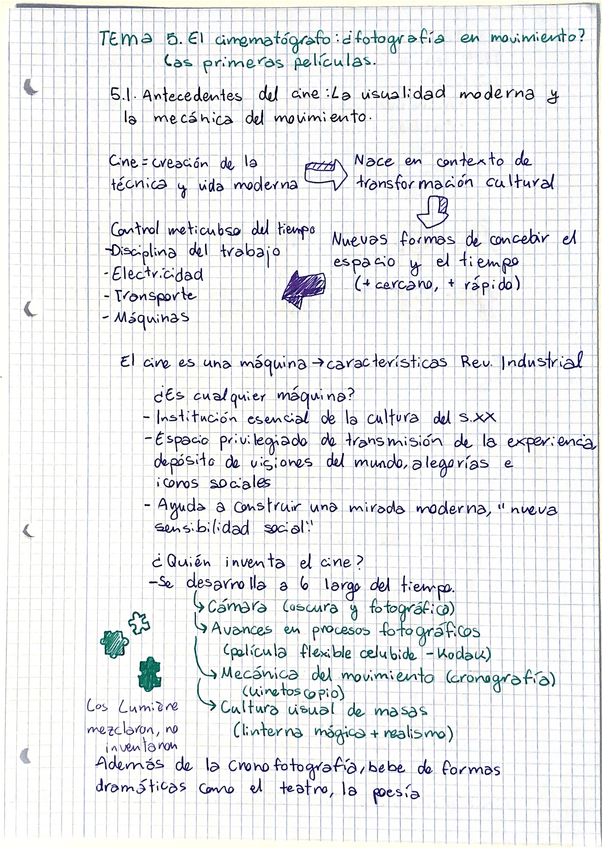 Tema 5. El cinematógrafo: ¿fotografía en movimiento?
Las primeras películas.
5.1. Antecedentes del cine: La visualidad moderna y
la mecánica del movimiento.
Cine = creación de la
técnica y vida moderna
Nace en contexto de
transformación cultural
Nuevas formas de concebir el
espacio y el tiempo
(+ cercano, + rápido)
Control meticuloso del tiempo
-Disciplina del trabajo
- Electricidad
- Transporte
- Máquinas
El cine es una máquina → características Rev. Industrial
¿Es cualquier máquina?
- Institución esencial de la cultura del s.XX
- Espacio privilegiado de transmisión de la experiencia,
depósito de visiones del mundo, alegorías e
iconos sociales
- Ayuda a construir una mirada moderna, "nueva
sensibilidad social"
¿Quién inventa el cine?
-Se desarrolla a lo largo del tiempo.
↳ Cámara (oscura y fotográfica)
↳ Avances en procesos fotográficos
(película flexible celuloide - Kodak)
↳ Mecánica del movimiento (cronografía)
(kinetoscopio)
↳ Cultura visual de masas
(linterna mágica + realismo)
Los Lumiere
mezclaron, no
inventaron
Además de la cronofotografía, bebe de formas
dramáticas como el teatro, la poesía